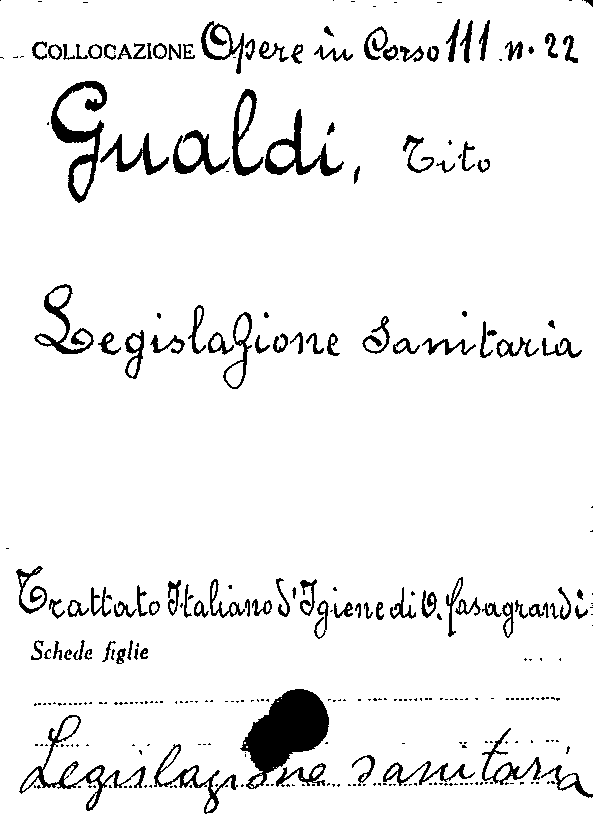 COLLOCAZIONE Opere in Corso 111 n. 22
Gualdi, Tito
Legislazione sanitaria
Trattato Italiano d'Igiene di O. Casagrandi
Schede figlie
Legislazione sanitaria